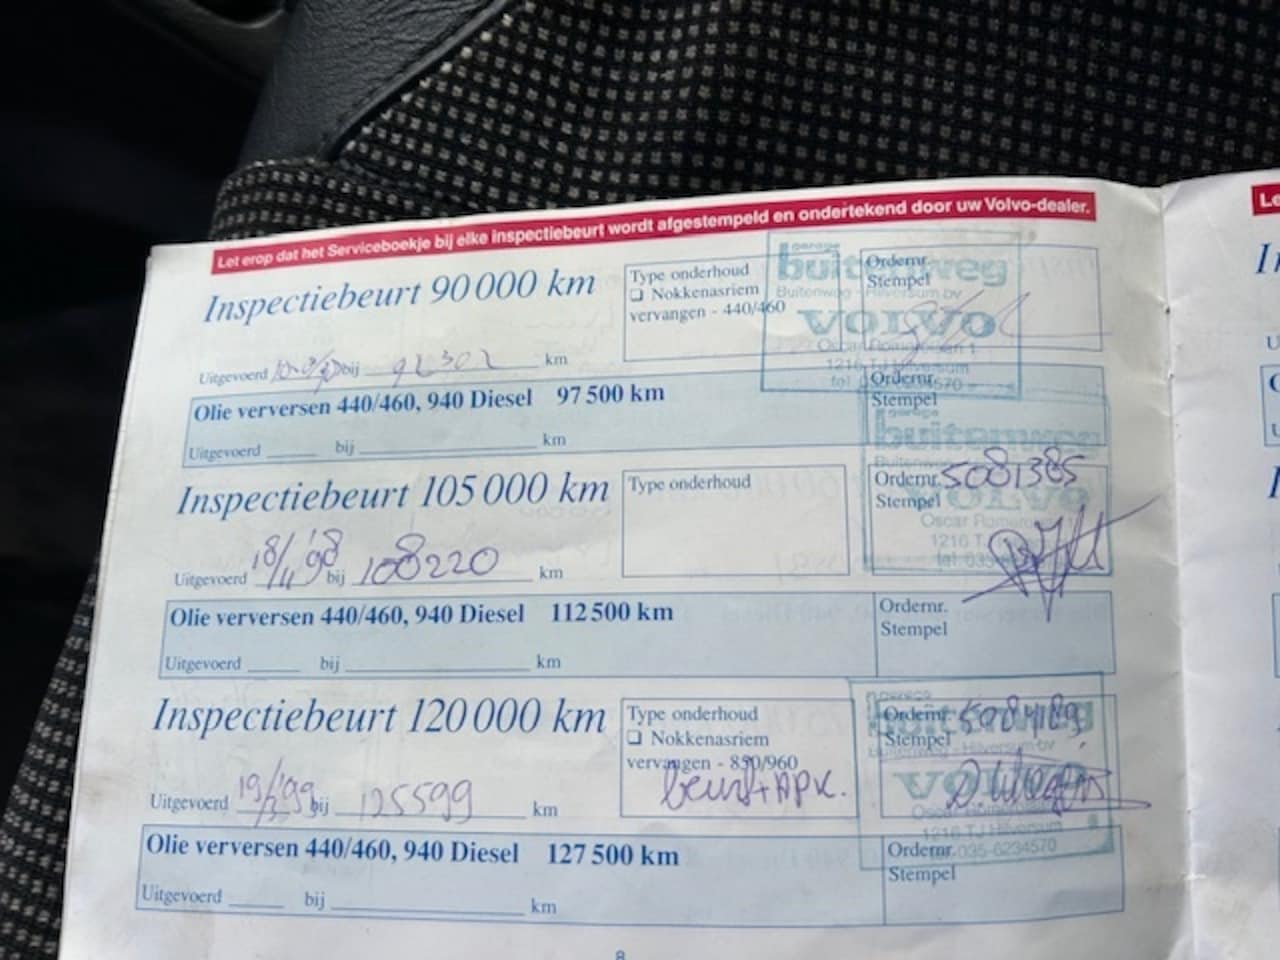 Let erop dat het Serviceboekje bij elke inspectiebeurt wordt afgestempeld en ondertekend door uw Volvo-dealer.
Inspectiebeurt 90 000 km
Type onderhoud
❏ Nokkenasriem
vervangen - 440/460
Ordernr.
Stempel
garage
buitenweg
Buitenweg - Hilversum bv
VOLVO
Oscar Romerolaan 1
1216 TJ Hilversum
Uitgevoerd bij 92302 km
Olie verversen 440/460, 940 Diesel 97 500 km
Ordernr.
Stempel
Uitgevoerd bij km
garage
buitenweg
Inspectiebeurt 105 000 km
Type onderhoud
Ordernr. 5081385
Stempel
VOLVO
Oscar Romero
1216 T
tel. 035
Uitgevoerd 18/11 '98 bij 108220 km
Olie verversen 440/460, 940 Diesel 112 500 km
Ordernr.
Stempel
Uitgevoerd bij km
Inspectiebeurt 120 000 km
Type onderhoud
❏ Nokkenasriem
vervangen - 850/960
beurt + APK.
Ordernr.
Stempel
buitenweg
Buitenweg - Hilversum bv
VOLVO
1216 TJ Hilversum
tel. 035-6234570
Uitgevoerd bij 125599 km
Olie verversen 440/460, 940 Diesel 127 500 km
Ordernr.
Stempel
Uitgevoerd bij km
8
Le